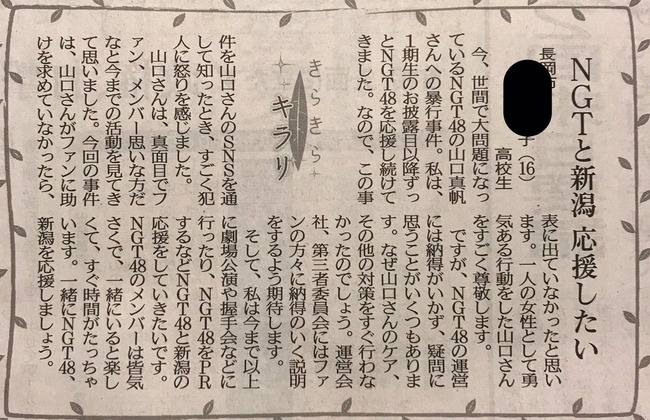 NGTと新潟 応援したい
長岡市
子(16)
高校生
今、世間で大問題になっ
ているNGT48の山口真帆
さんへの暴行事件。私は、
1期生のお披露目以降ずっ
とNGT48を応援し続けて
きました。なので、この事
きらきら
キラリ
件を山口さんのSNSを通
して知ったとき、すごく犯
人に怒りを感じました。
山口さんは、真面目でフ
ァン、メンバー思いな方だ
なと今までの活動を見てき
て思いました。今回の事件
は、山口さんがファンに助
けを求めていなかったら、
表に出ていなかったと思い
ます。一人の女性として勇
気ある行動をした山口さん
をすごく尊敬します。
ですが、NGT48の運営
には納得がいかず、疑問に
思うことがいくつもありま
す。なぜ山口さんのケア、
その他の対策をすぐ行わな
かったのでしょう。運営会
社、第三者委員会にはファ
ンの方々に納得のいく説明
をするよう期待します。
そして、私は今まで以上
に劇場公演や握手会などに
行ったり、NGT48をPR
するなどNGT48と新潟の
応援をしていきたいです。
NGT48のメンバーは皆気
さくで、一緒にいると楽し
くて、すぐ時間がたっちゃ
います。一緒にNGT48、
新潟を応援しましょう。